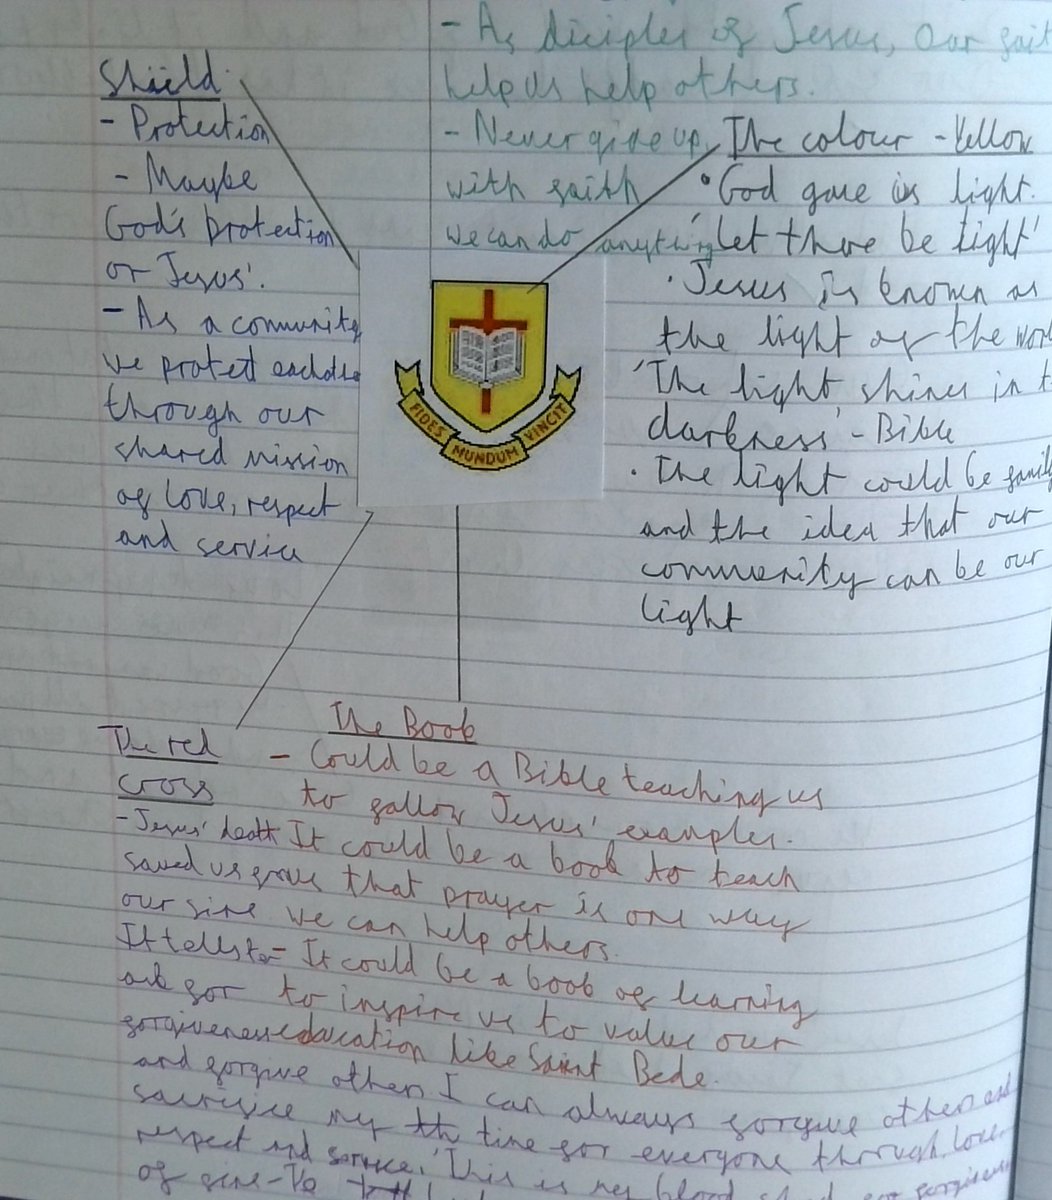 - As diciples of Jesus, our
help us help others.
- Never give up,
with faith
we can do anything
Shield
- Protection
- Maybe
God's protection
or Jesus'.
- As a comunity
we protect
through our
shared mission
of love, respect
and service
The colour - Yellow
• God gave us light.
'Let there be light'
• Jesus is known as
the light of the
'The light shines in
darkness' - Bible
• The light could be
and the idea that our
community can be our
light
FIDES MUNDUM VINCIT
The Book
- Could be a Bible teaching us
to follow Jesus' examples.
It could be a book to teach
that prayer is one way
we can help others.
- It could be a book of learning
to inspire us to value our
education like Saint Bede.
The red
cross
- Jesus' death
saved us from
our sins
It tells to
ask for
forgiveness
and forgive others I can always forgive others and
sacrifice my th time for everyone through love
respect and service. 'This is my blood
of